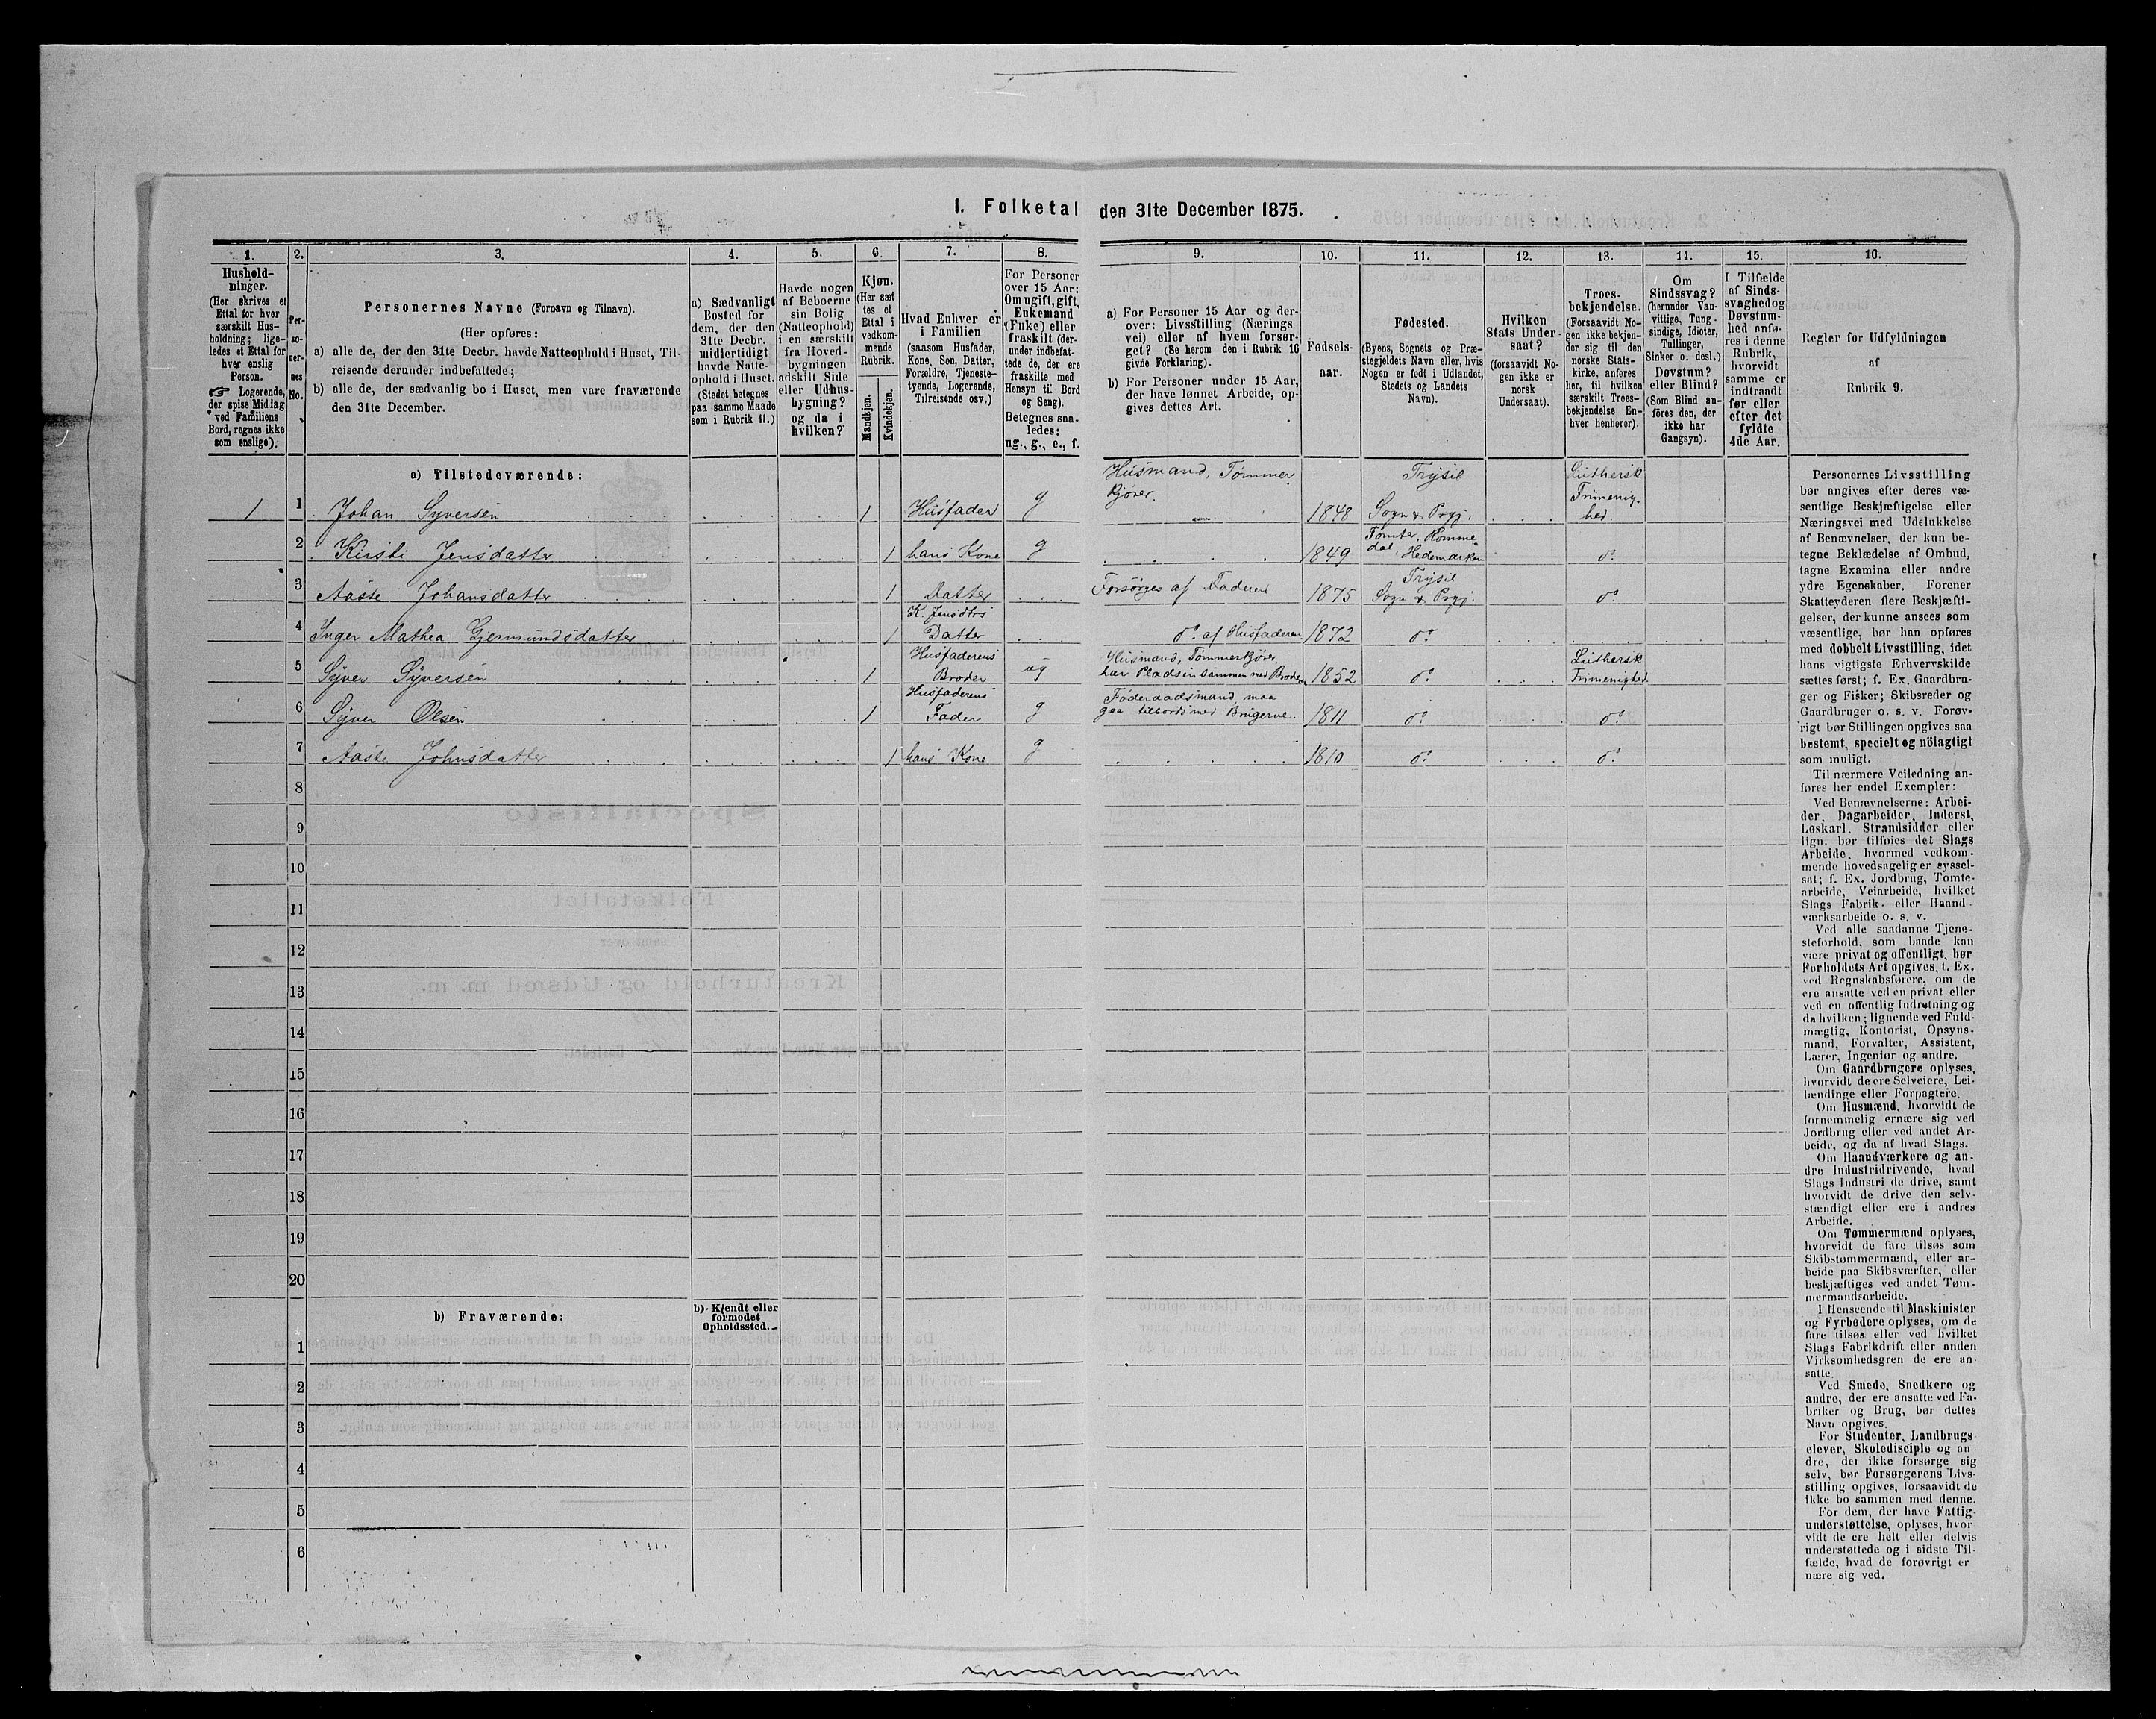 I. Folketal den 31te December 1875.
1.
Hushold-
ninger.
(Her skrives et
Ettal for hver
særskilt Hus-
holdning; lige-
ledes et Ettal for
hver enslig
Person.
☞ Logerende,
der spise Middag
ved Familiens
Bord, regnes ikke
som enslige).
2.
Per-
so-
ner-
nes
No.
3.
Personernes Navne (Fornavn og Tilnavn).
(Her opføres:
a) alle de, der den 31te Decbr. havde Natteophold i Huset, Til-
reisende derunder indbefattede;
b) alle de, der sædvanlig bo i Huset, men vare fraværende
den 31te December.
4.
a) Sædvanligt
Bosted for
dem, der den
31te Decbr.
midlertidigt
havde Natte-
ophold i Huset.
(Stedet betegnes
paa samme Maade
som i Rubrik 11.)
5.
Havde nogen
af Beboerne
sin Bolig
(Natteophold)
i en særskilt
fra Hoved-
bygningen
adskilt Side
eller Udhus-
bygning?
og da i
hvilken?
6.
Kjøn.
(Her sæt
tes et
Ettal i
vedkom-
mende
Rubrik.
Mandkjøn.
Kvindekjøn.
7.
Hvad Enhver er
i Familien
(saasom Husfader,
Kone, Søn, Datter,
Forældre, Tjeneste-
tyende, Logerende,
Tilreisende osv.)
8.
For Personer
over 15 Aar:
Om ugift, gift,
Enkemand
(Enke) eller
fraskilt (der-
under indbefat-
tede de, der ere
fraskilte med
Hensyn til Bord
og Seng).
Betegnes saa-
ledes:
ug., g., e., f.
9.
a) For Personer 15 Aar og der-
over: Livsstilling (Nærings
vei) eller af hvem forsør-
get? (Se herom den i Rubrik 16
givne Forklaring).
b) For Personer under 15 Aar,
der have lønnet Arbeide, op-
gives dettes Art.
10.
Fødsels-
aar.
11.
Fødested.
(Byens, Sognets og Præ-
stegjeldets Navn eller, hvis
Nogen er født i Udlandet,
Stedets og Landets
Navn).
12.
Hvilken
Stats Under-
saat?
(forsaavidt No-
gen ikke er
norsk
Undersaat).
13.
Troes-
bekjendelse.
(Forsaavidt No-
gen ikke bekjen-
der sig til den
norske Stats-
kirke, anføres
her, til hvilken
særskilt Troes-
bekjendelse En-
hver henhører).
14.
Om
Sindssvag?
(herunder Van-
vittige, Tung-
sindige, Idioter,
Tullinger,
Sinker o. desl.)
Døvstum?
eller Blind?
(Som Blind an-
føres den, der
ikke har
Gangsyn).
15.
I Tilfælde
af Sinds-
svaghed og
Døvstum-
hed anfø-
res i denne
Rubrik,
hvorvidt
samme er
indtraadt
før eller
efter det
fyldte
4de Aar.
16.
Regler for Udfyldningen
af
Rubrik 9.
a) Tilstedeværende:
1 1 Johan Syversen 1 Husfader g Husmand, Tømmer
kjører. 1848 Trysil
Sogn & Prgj. Luthersk
Frimenig-
hed
2 Kirsti Jensdatter 1 hans Kone g 1849 Tomter, Romme-
dal, Hedemarken do
3 Aaste Johansdatter 1 Datter Forsørges af Faderen 1875 Trysil
Sogn & Prgj. do
4 Inger Mathea Gjermundsdatter 1 K. Jensdtrs
Datter do af Husfaderen 1872 do
5 Syver Syversen 1 Husfaderens
Broder ug Husmand, Tømmerkjører,
har Pladsen sammen med Broderen 1852 do Luthersk
Frimenighed
6 Syver Olsen 1 Husfaderens
Fader g Føderaadsmand, maa
gaa tilbords med Brugerne. 1811 do do
7 Aaste Johnsdatter 1 hans Kone g 1810 do do
8
9
10
11
12
13
14
15
16
17
18
19
20
b) Fraværende:
b) Kjendt eller
formodet
Opholdssted.
1
2
3
4
5
6
Personernes Livsstilling
bør angives efter deres væ-
sentlige Beskjæftigelse eller
Næringsvei med Udelukkelse
af Benævnelser, der kun be-
tegne Beklædelse af Ombud,
tagne Examina eller andre
ydre Egenskaber. Forener
Skatteyderen flere Beskjæfti-
gelser, der kunne ansees som
væsentlige, bør han opføres
med dobbelt Livsstilling, idet
hans vigtigste Erhvervskilde
sættes først; f. Ex. Gaardbru-
ger og Fisker; Skibsreder og
Gaardbruger o. s. v. Forøv-
rigt bør Stillingen opgives saa
bestemt, specielt og nöiagtigt
som muligt.
Til nærmere Veiledning an-
føres her endel Exempler:
Ved Benævnelserne: Arbei-
der, Dagarbeider, Inderst,
Løskarl, Strandsidder eller
lign. bør tilføies det Slags
Arbeide, hvormed vedkom-
mende hovedsagelig er syssel-
sat; f. Ex. Jordbrug, Tomte-
arbeide, Veiarbeide, hvilket
Slags Fabrik- eller Haand-
værksarbeide o. s. v.
Ved alle saadanne Tjene-
steforhold, som baade kan
være privat og offentligt, bør
Forholdets Art opgives, t. Ex.
ved Regnskabsførere, om de
ere ansatte ved en privat eller
ved en offentlig Indretning og
da hvilken; lignende ved Fuld-
mægtig, Kontorist, Opsyns-
mand, Forvalter, Assistent,
Lærer, Ingeniør og andre.
Om Gaardbrugere oplyses,
hvorvidt de ere Selveiere, Lei-
lændinge eller Forpagtere.
Om Husmænd, hvorvidt de
fornemmelig ernære sig ved
Jordbrug eller ved andet Ar-
beide, og da af hvad Slags.
Om Haandværkere og an-
dre Industridrivende, hvad
Slags Industri de drive, samt
hvorvidt de drive den selv-
stændigt eller ere i andres
Arbeide.
Om Tømmermænd oplyses,
hvorvidt de fare tilsøs som
Skibstømmermænd, eller ar-
beide paa Skibsværfter, eller
beskjæftiges ved andet Tøm-
mermandsarbeide.
I Henseende til Maskinister
og Fyrbødere oplyses, om de
fare tilsøs eller ved hvilket
Slags Fabrikdrift eller anden
Virksomhedsgren de ere an-
satte.
Ved Smede, Snedkere og
andre, der ere ansatte ved Fa-
briker og Brug, bør dettes
Navn opgives.
For Studenter, Landbrugs-
elever, Skoledisciple og an-
dre, der ikke forsørge sig
selv, bør Forsørgerens Livs-
stilling opgives, forsaavidt de
ikke bo sammen med denne.
For dem, der have Fattig-
understøttelse, oplyses, hvor-
vidt de ere helt eller delvis
understøttede og i sidste Til-
fælde, hvad de forøvrigt er-
nære sig ved.